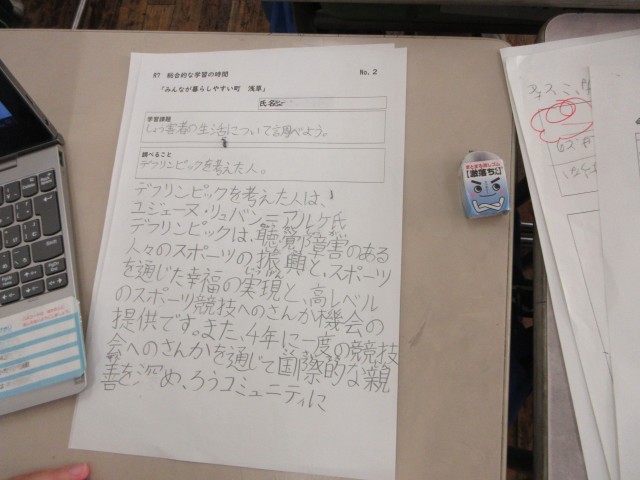 R7 総合的な学習の時間
No.2
「みんなが暮らしやすい町 浅草」
氏名
学習課題
しょう害者の生活について調べよう。
調べること
デフリンピックを考えた人。
デフリンピックを考えた人は、
ユジェーヌ・リュバン＝アルケ氏
デフリンピックは、聴覚障害のある
人々のスポーツの振興と、スポーツ
を通じた幸福の実現と、高レベル
のスポーツ競技へのさんか機会の
提供です。また、4年に一度の競技
会へのさんかを通じて国際的な親
善を深め、ろうコミュニティに
激落ち